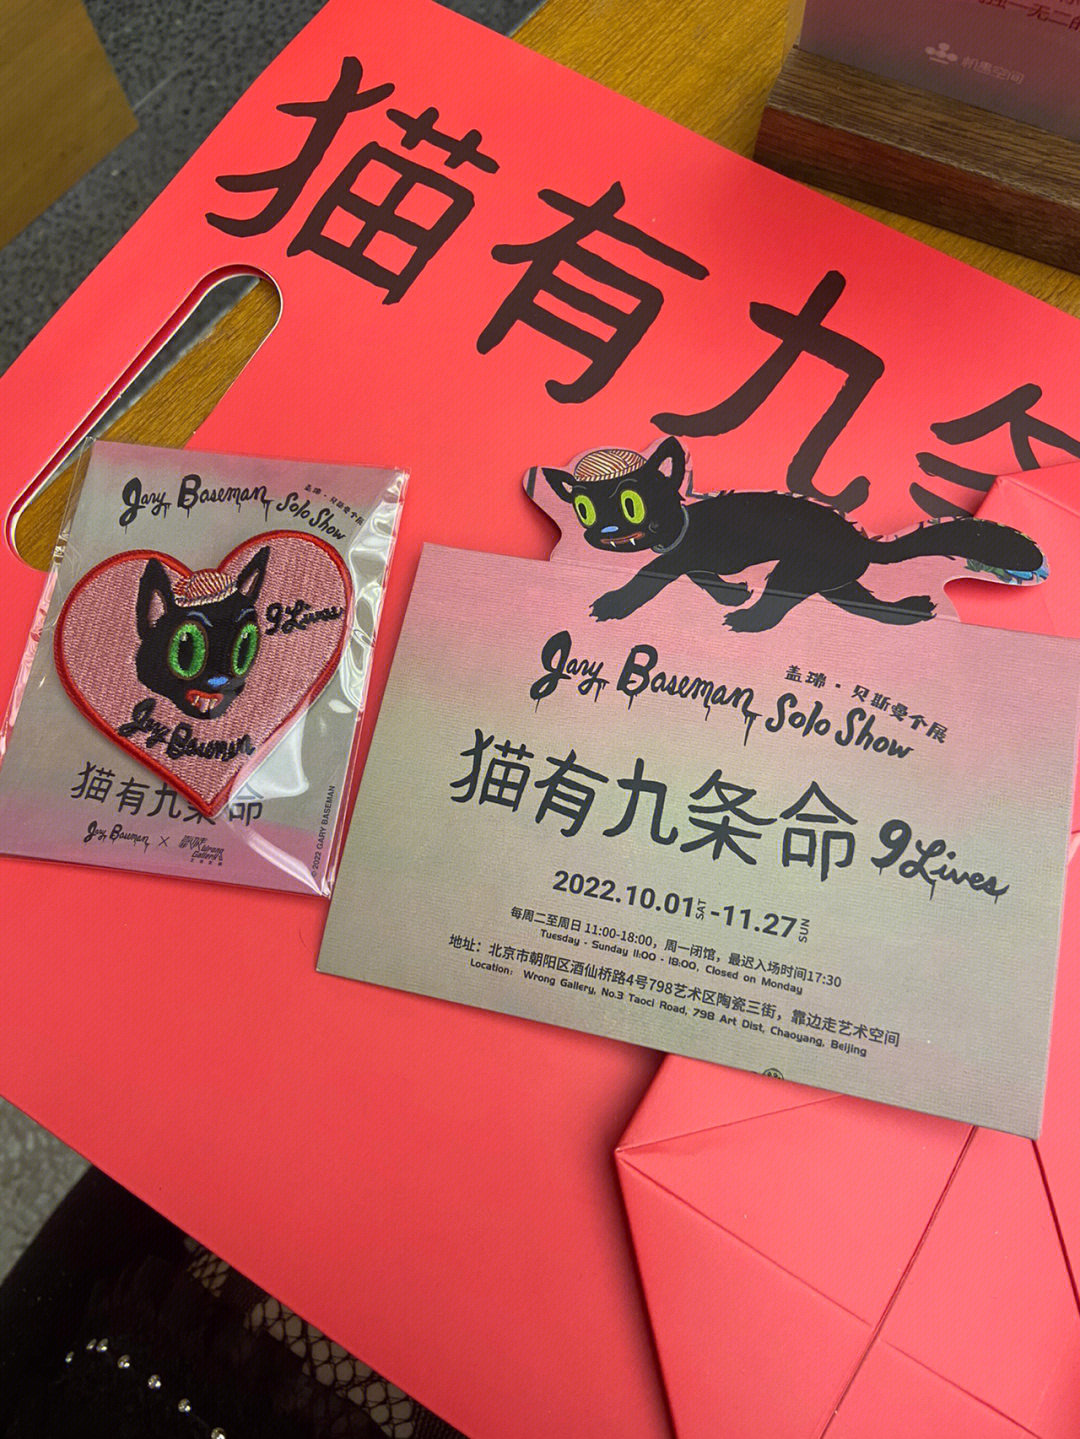 独一无二的
机遇空间
猫有九条
Gary Baseman Solo Show
盖瑞·贝斯曼个展
9 Lives
Gary Baseman
猫有九条命
Gary Baseman × Wrong Gallery
© 2022 GARY BASEMAN
Gary Baseman Solo Show
盖瑞·贝斯曼个展
猫有九条命 9 Lives
2022.10.01 SAT -11.27 SUN
每周二至周日 11:00-18:00，周一闭馆，最迟入场时间17:30
Tuesday - Sunday 11:00 - 18:00, Closed on Monday
地址：北京市朝阳区酒仙桥路4号798艺术区陶瓷三街，靠边走艺术空间
Location: Wrong Gallery, No.3 Taoci Road, 798 Art Dist, Chaoyang, Beijing